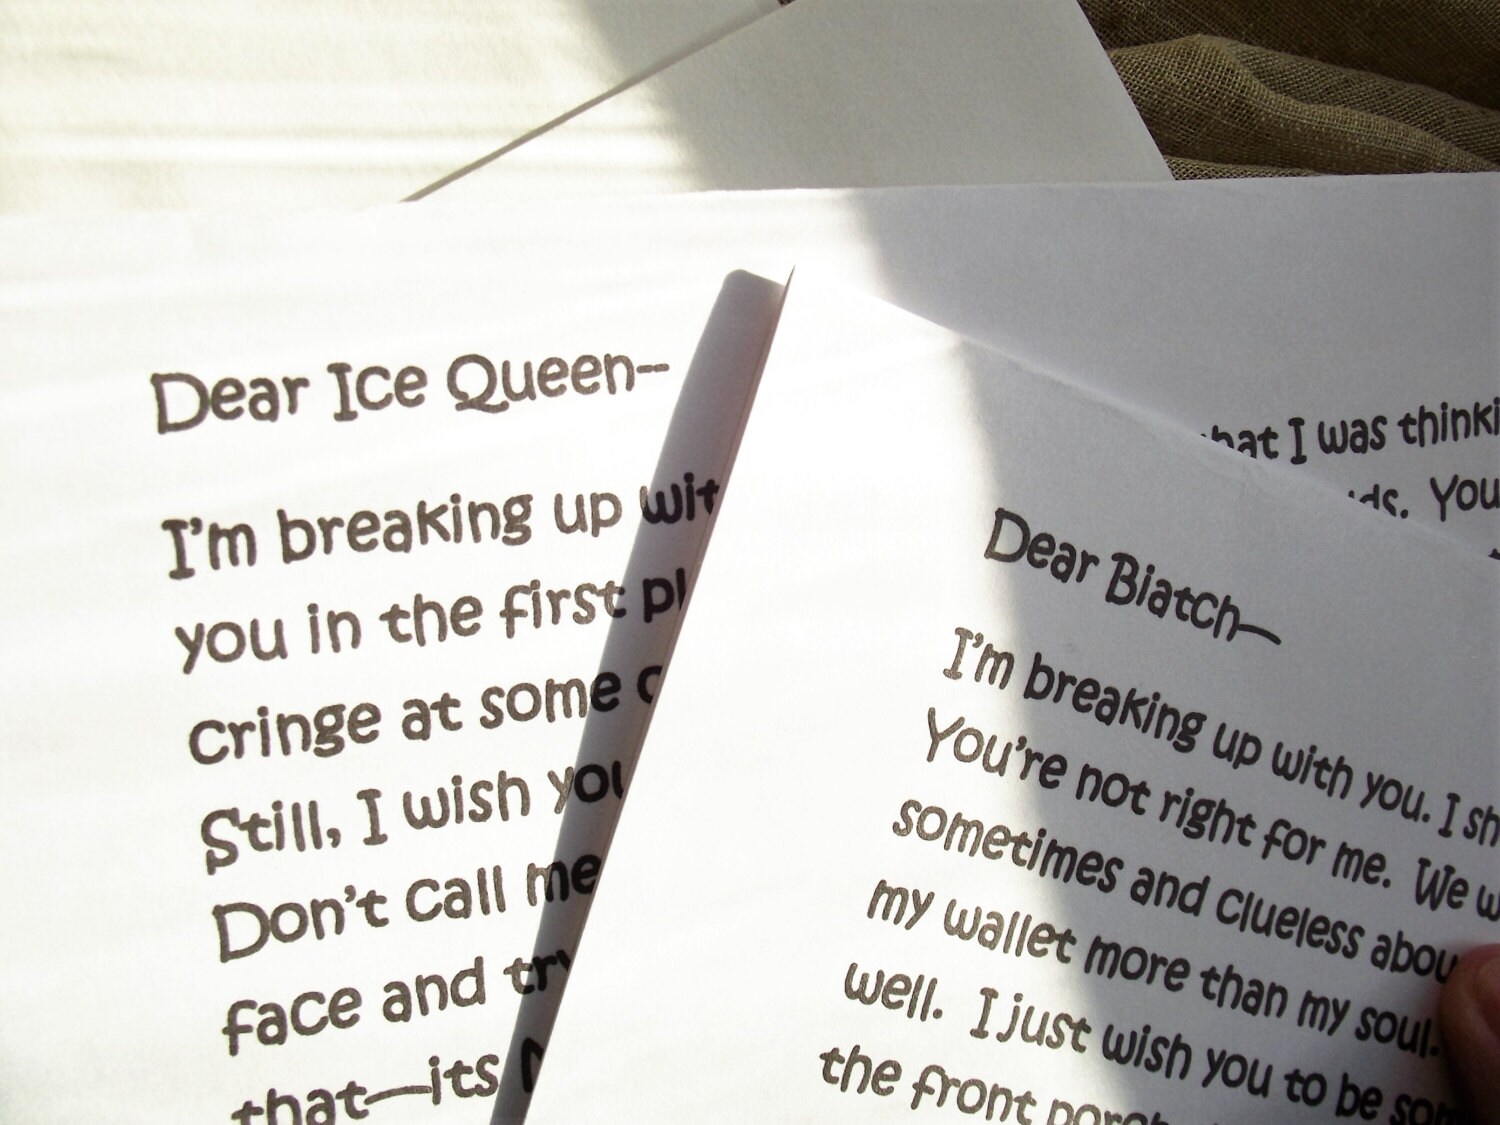 Dear Ice Queen—
I'm breaking up
you in the first
cringe at some
Still, I wish you
Don't call me
face and try
that—its
that I was
You
Dear Biatch—
I'm breaking up with you. I
You're not right for me. We
sometimes and clueless
my wallet more than my soul.
well. I just wish you to be
the front